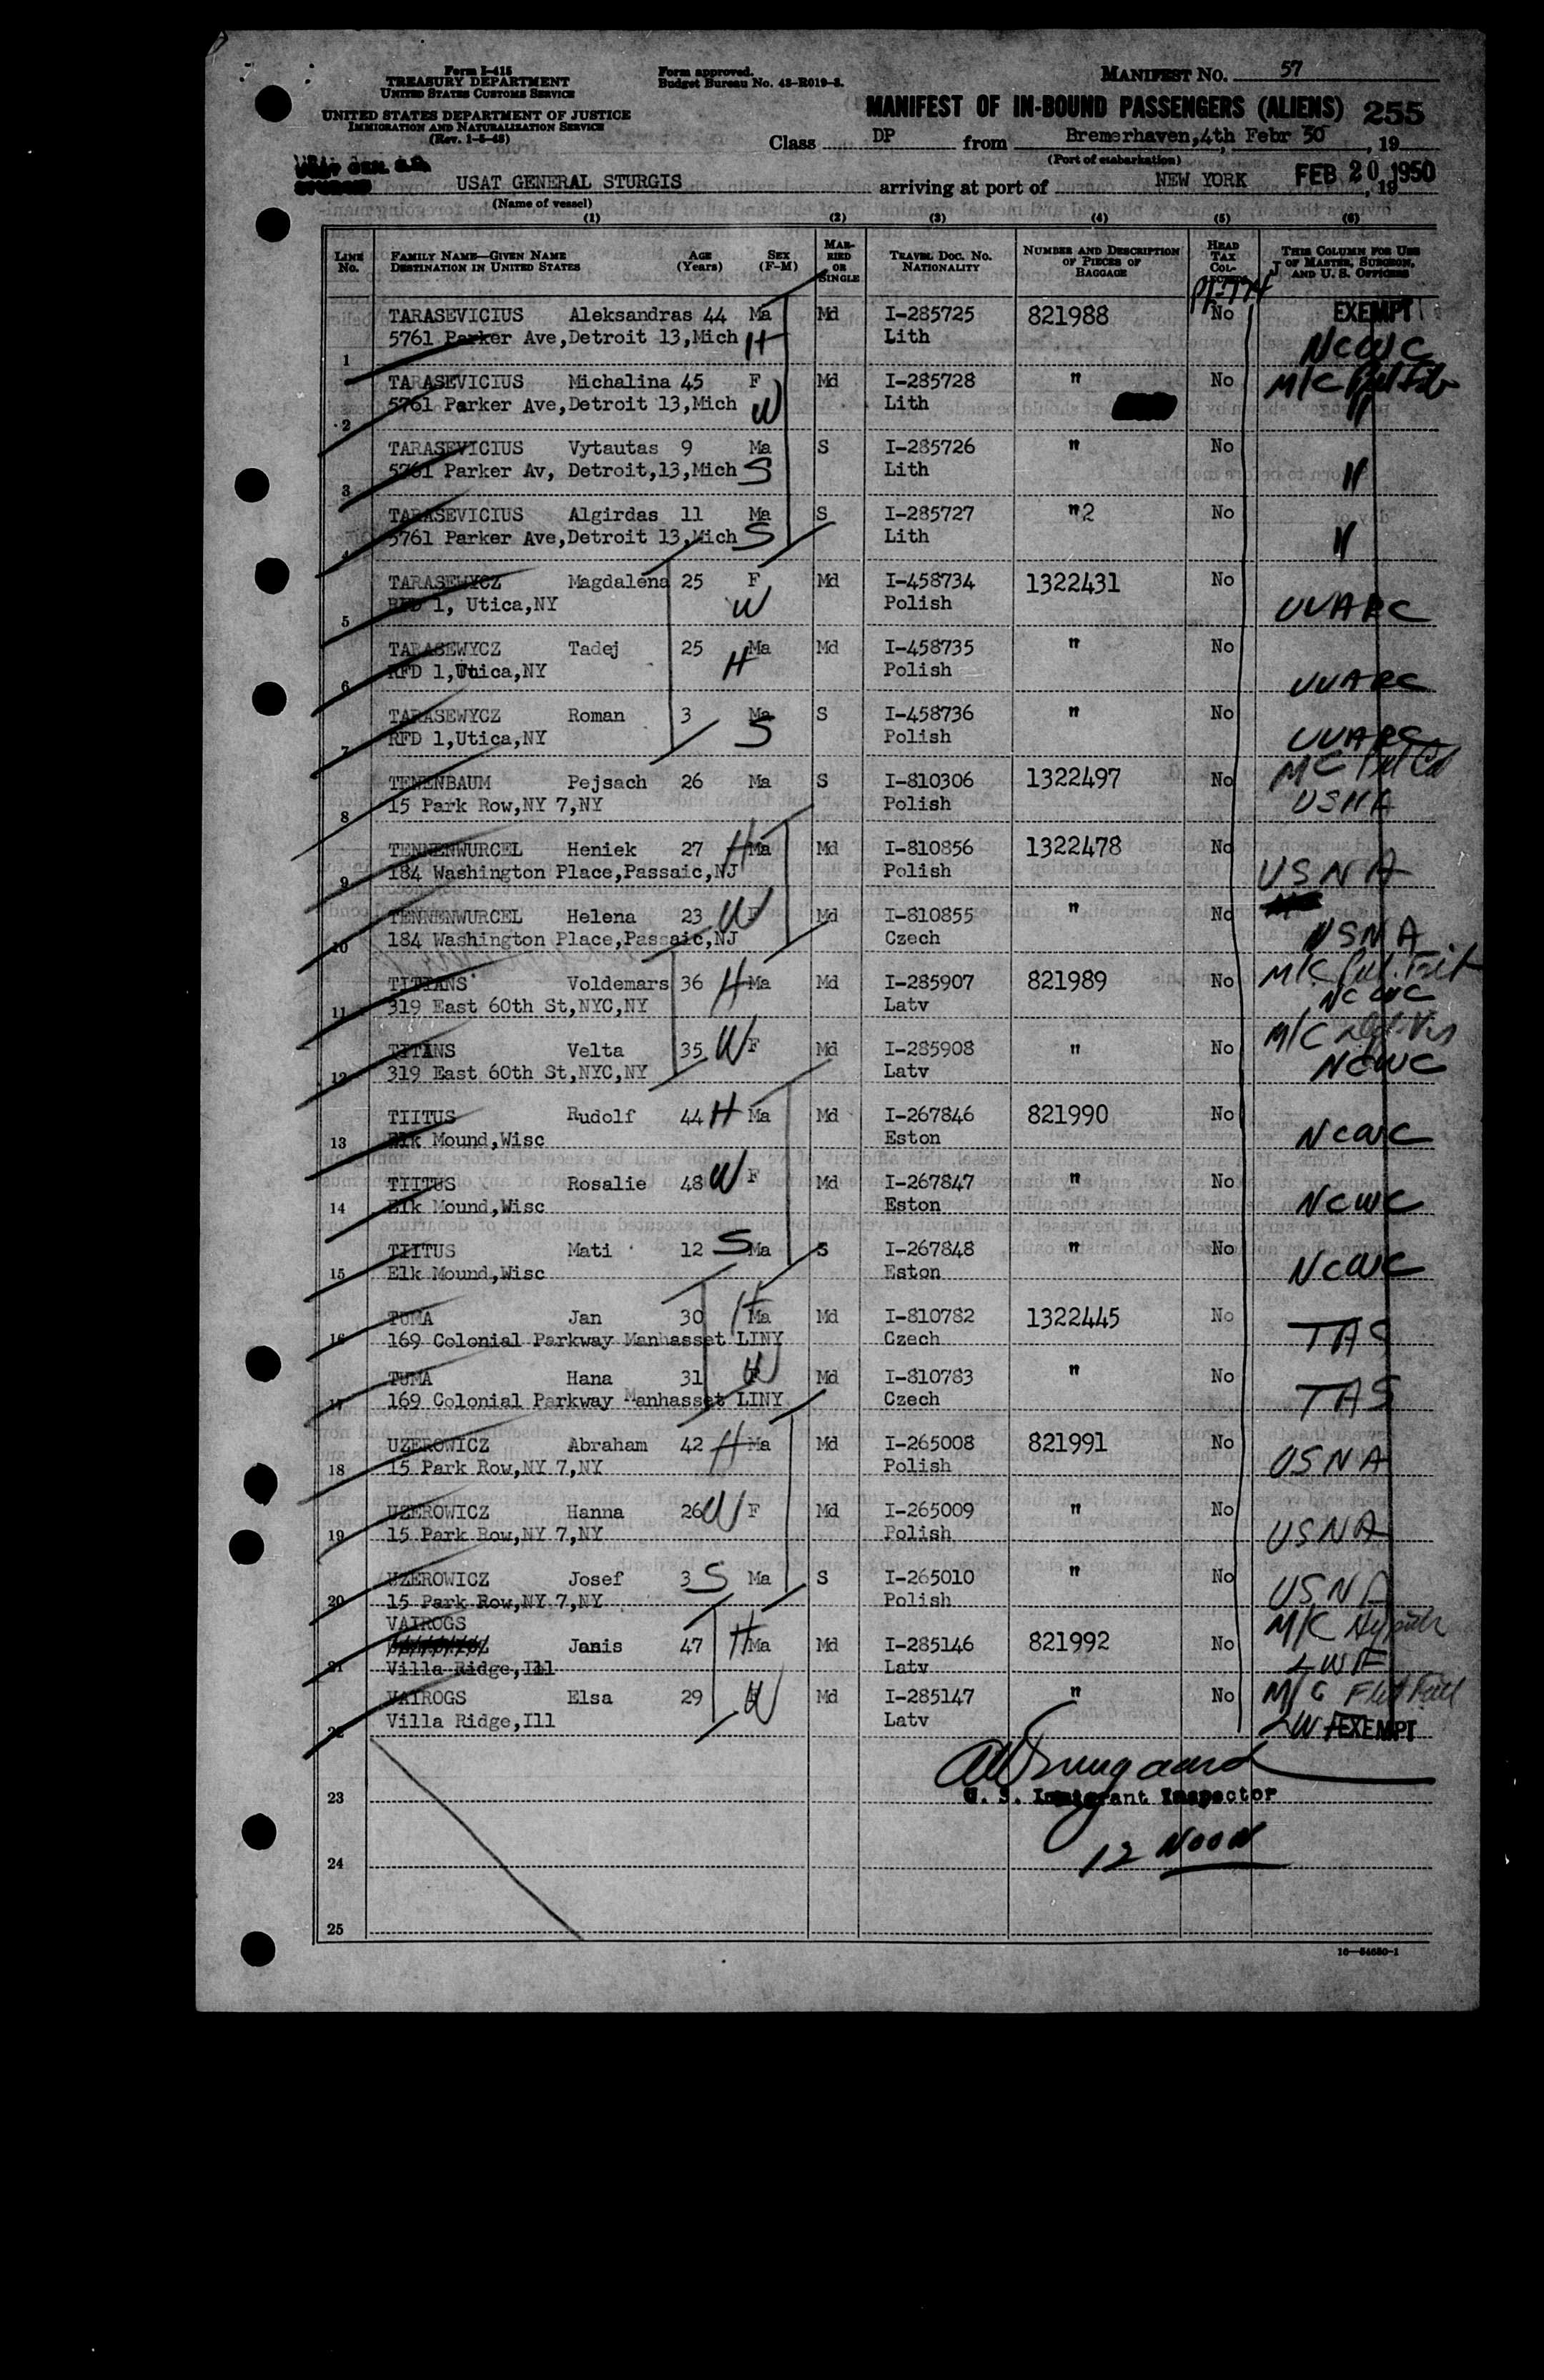 Form I-415
TREASURY DEPARTMENT
UNITED STATES CUSTOMS SERVICE
UNITED STATES DEPARTMENT OF JUSTICE
IMMIGRATION AND NATURALIZATION SERVICE
(Rev. 1-5-48)
Form approved.
Budget Bureau No. 43-R019-3.
MANIFEST NO. 57
MANIFEST OF IN-BOUND PASSENGERS (ALIENS) 255
Class DP from Bremerhaven,4th Febr 50, 19
(Port of embarkation)
USAT GENERAL STURGIS arriving at port of NEW YORK FEB 20 1950, 19
(Name of vessel)
(1) (2) (3) (4) (5) (6)
LINE No. FAMILY NAME—GIVEN NAME DESTINATION IN UNITED STATES AGE (Years) SEX (F-M) MARRIED OR SINGLE TRAVEL DOC. NO. NATIONALITY NUMBER AND DESCRIPTION OF PIECES OF BAGGAGE HEAD TAX COLLECTED THIS COLUMN FOR USE OF MASTER, SURGEON, AND U. S. OFFICERS
TARASEVICIUS Aleksandras 44 Ma Md I-285725 821988 No EXEMPT
1 5761 Parker Ave,Detroit 13,Mich H Lith NCWC
TARASEVICIUS Michalina 45 F Md I-285728 " No M/C
2 5761 Parker Ave,Detroit 13,Mich W Lith "
TARASEVICIUS Vytautas 9 Ma S I-285726 " No
3 5761 Parker Av, Detroit,13,Mich S Lith "
TARASEVICIUS Algirdas 11 Ma S I-285727 "2 No
4 5761 Parker Ave,Detroit 13,Mich S Lith "
TARASEWYCZ Magdalena 25 F Md I-458734 1322431 No
5 RFD 1, Utica,NY W Polish UUARC
TARASEWYCZ Tadej 25 Ma Md I-458735 " No
6 RFD 1,Utica,NY H Polish UUARC
TARASEWYCZ Roman 3 Ma S I-458736 " No
7 RFD 1,Utica,NY S Polish UUARC
TENENBAUM Pejsach 26 Ma S I-810306 1322497 No M/C
8 15 Park Row,NY 7,NY Polish USNA
TENNENWURCEL Heniek 27 H Ma Md I-810856 1322478 No
9 184 Washington Place,Passaic,NJ Polish USNA
TENNENWURCEL Helena 23 W F Md I-810855 " No
10 184 Washington Place,Passaic,NJ Czech USNA
TITIANS Voldemars 36 H Ma Md I-285907 821989 No M/C
11 319 East 60th St,NYC,NY Latv NCWC
TITANS Velta 35 W F Md I-285908 " No M/C
12 319 East 60th St,NYC,NY Latv NCWC
TIITUS Rudolf 44 H Ma Md I-267846 821990 No
13 Elk Mound,Wisc Eston NCWC
TIITUS Rosalie 48 W F Md I-267847 " No
14 Elk Mound,Wisc Eston NCWC
TIITUS Mati 12 S Ma S I-267848 " No
15 Elk Mound,Wisc Eston NCWC
TUMA Jan 30 H Ma Md I-810782 1322445 No
16 169 Colonial Parkway Manhasset LINY Czech TAS
TUMA Hana 31 W F Md I-810783 " No
17 169 Colonial Parkway Manhasset LINY Czech TAS
UZEROWICZ Abraham 42 H Ma Md I-265008 821991 No
18 15 Park Row,NY 7,NY Polish USNA
UZEROWICZ Hanna 26 W F Md I-265009 " No
19 15 Park Row,NY 7,NY Polish USNA
UZEROWICZ Josef 3 S Ma S I-265010 " No
20 15 Park Row,NY 7,NY Polish USNA
VAIROGS
Janis 47 H Ma Md I-285146 821992 No M/C
21 Villa Ridge,Ill Latv LWF
VAIROGS Elsa 29 W F Md I-285147 " No M/C
22 Villa Ridge,Ill Latv LWF EXEMPT
23 U. S. Immigrant Inspector
24 12 NOON
25
16—54650-1